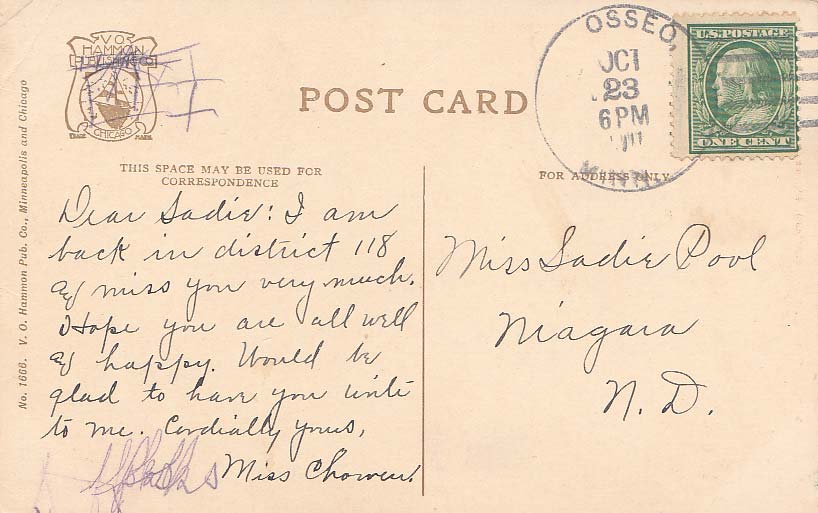 V.O.
HAMMON
PUBLISHING CO.
CHICAGO
TRADE MARK
POST CARD
OSSEO,
OCT
23
6 PM
MINN.
U.S. POSTAGE
ONE CENT
THIS SPACE MAY BE USED FOR
CORRESPONDENCE
FOR ADDRESS ONLY
No. 1666. V. O. Hammon Pub. Co., Minneapolis and Chicago
Dear Sadie: I am
back in district 118
& miss you very much.
Hope you are all well
& happy. Would be
glad to have you write
to me. Cordially yours,
Miss Chowen.
Miss Sadie Pool
Niagara
N. D.